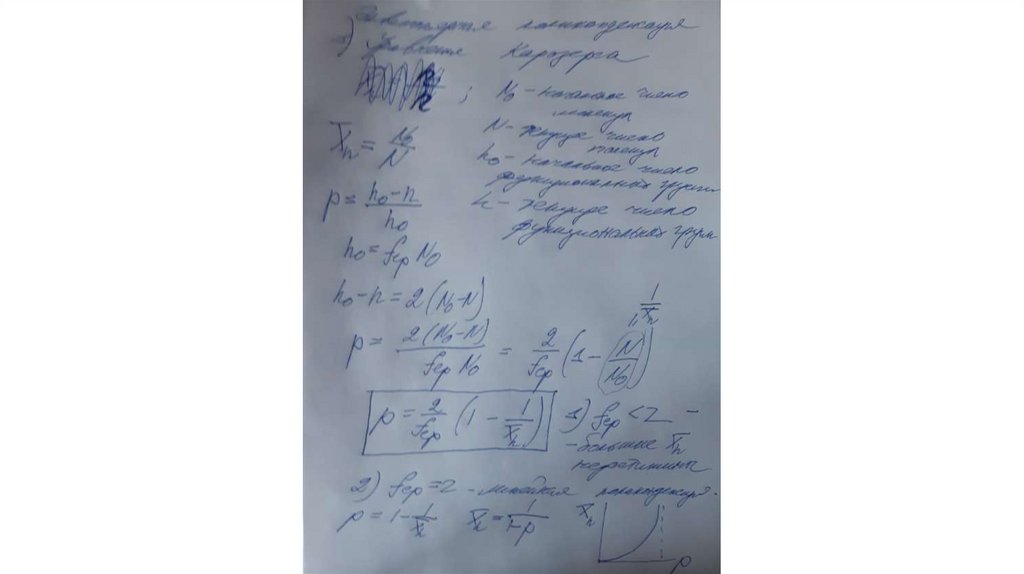 поликонденсация
5) Уравнение Карозерса
; N₀ – начальное число
молекул
X̄n = N₀/N
N – текущее число
молекул
h₀ – начальное число
функциональных групп
p = (h₀ – h)/h₀
h – текущее число
функциональных групп
h₀ = fср N₀
h₀ – h = 2(N₀ – N)
p = 2(N₀ – N)/(fср N₀) = 2/fср (1 – N/N₀)
" 1/X̄n
p = 2/fср (1 – 1/X̄n)
1) fср < 2 –
– большие X̄n
недостижимы
2) fср = 2 – линейная поликонденсация.
p = 1 – 1/X̄n X̄n = 1/(1–p)
X̄n
p